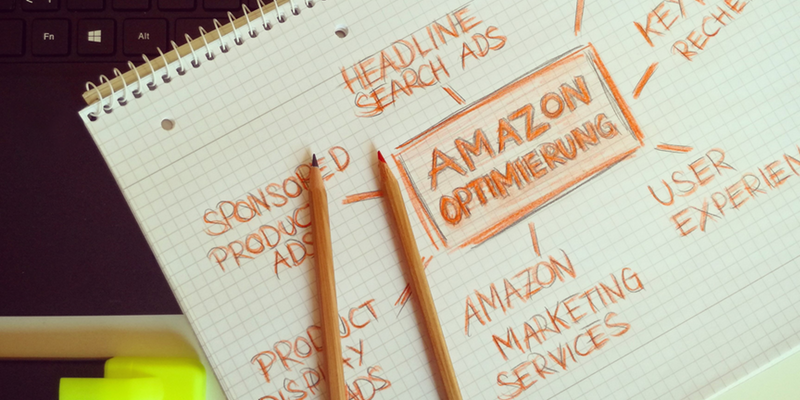 Fn
Alt
HEADLINE
SEARCH ADS
KEY
RECHE
AMAZON
OPTIMIERUNG
SPONSORED
PRODUCT
ADS
USER
EXPERIEN
AMAZON
MARKETING
SERVICES
PRODUCT
DISPLAY
ADS